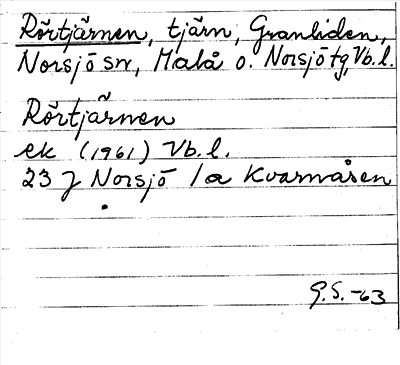 Rörtjärnen, tjärn, Granliden,
Norsjö sn, Malå o. Norsjö tg, Vb. l.
Rörtjärnen
ek (1961) Vb. l.
23 J Norsjö 1a Kvarnåsen
G.S. -63